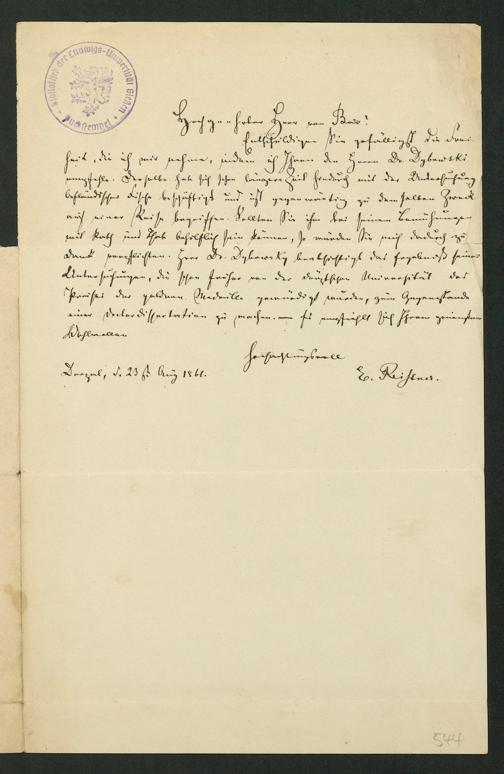 Bibliothek der Ludwigs-Universität Giessen
Hochgeehrter Herr von Baer!
Entschuldigen Sie gefälligst die Frei-
heit, die ich mir nehme, indem ich Ihnen den Herrn Dr. Dybowski
empfehle. Derselbe hat sich schon längere Zeit hindurch mit der Untersuchung
livländischer Fische beschäftigt und ist gegenwärtig zu demselben Zweck
auf einer Reise begriffen. Sollten Sie ihm bei seinen Bemühungen
mit Rath und That behülflich sein können, so würden Sie mich dadurch zu
Dank verpflichten. Herr Dr. Dybowsky beabsichtigt das Ergebniß seiner
Untersuchungen, die schon früher von der Universität des
Preises der goldenen Medaille gewürdigt wurden, zum Gegenstande
einer Doctordissertation zu machen. — Es empfiehlt sich Ihrem geneigten
Wohlwollen
Hochachtungsvoll
Dorpat, d. 23 Aug 1861. E. Reissner.
544